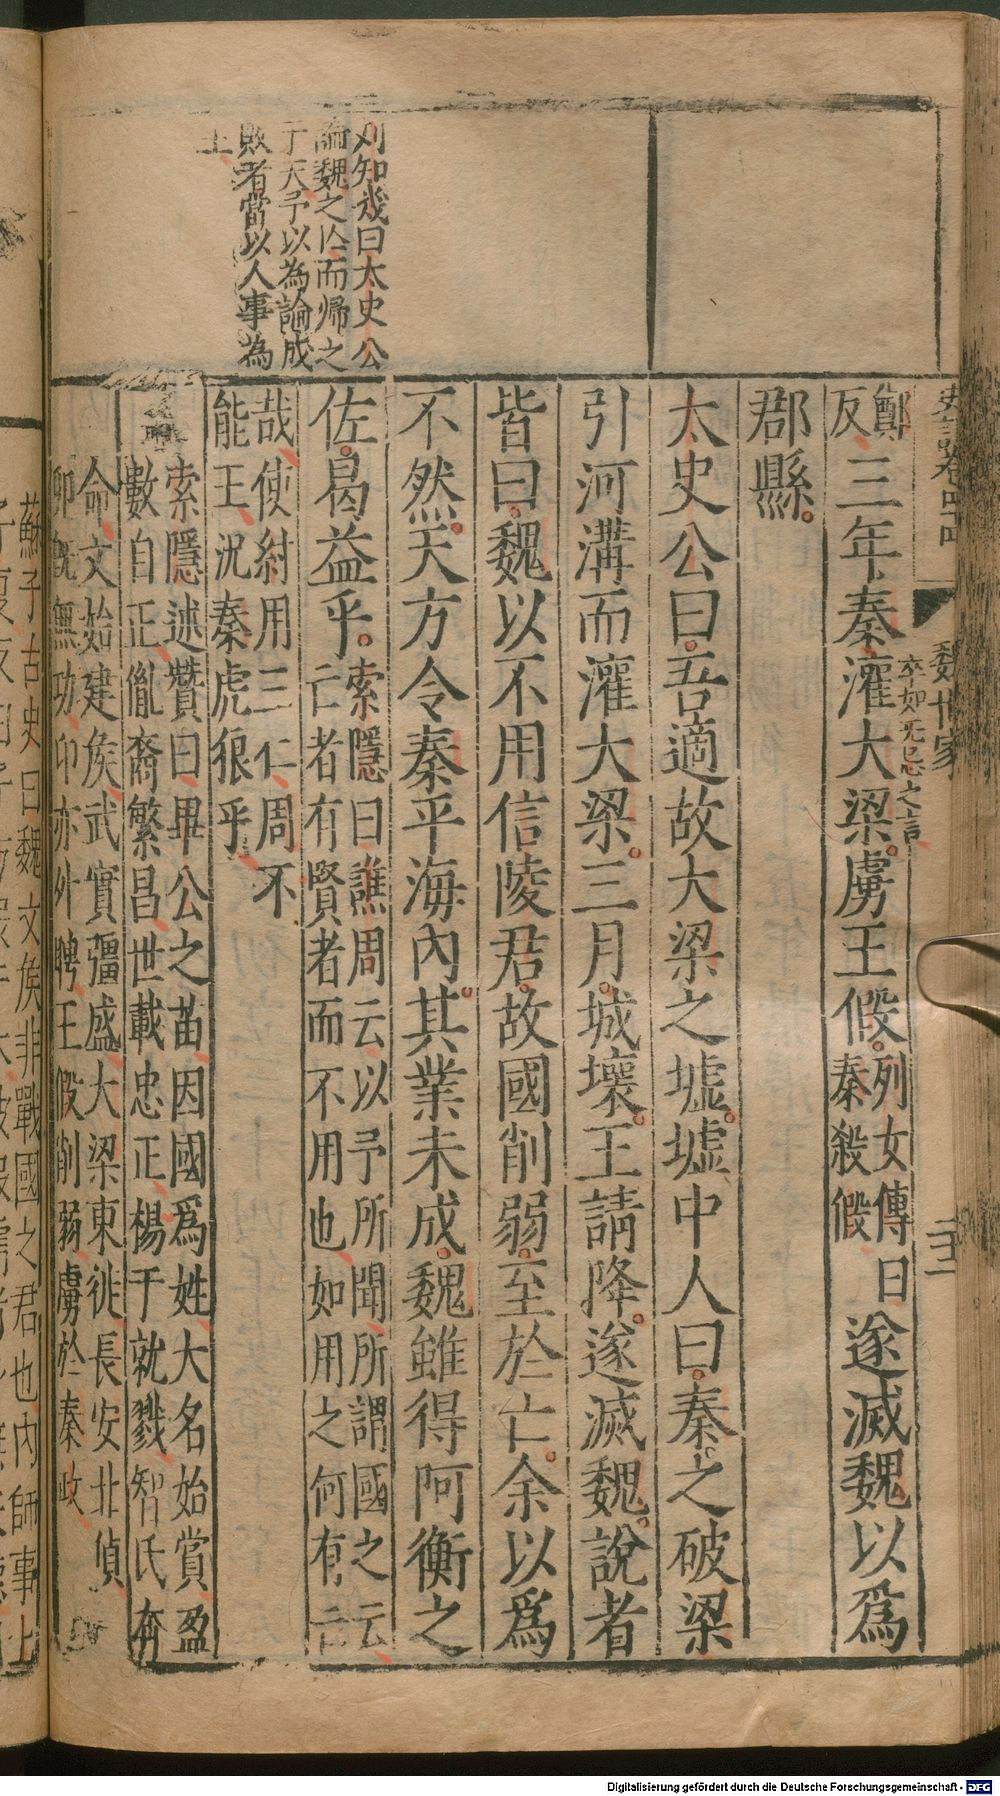 史記卷四四
魏世家
二十一
卒如无忌之言
鄭
反三年秦灌大梁虜王假列女傳曰
秦殺假
遂滅魏以爲
郡縣
太史公曰吾適故大梁之墟墟中人曰秦之破梁
引河溝而灌大梁三月城壞王請降遂滅魏說者
皆曰魏以不用信陵君故國削弱至於亡余以爲
不然天方令秦平海內其業未成魏雖得阿衡之
佐曷益乎索隱曰譙周云以予所聞所謂國之云
亡者有賢者而不用也如用之何有亡
哉使紂用三仁周不
能王況秦虎狼乎
索隱述贊曰畢公之苗因國爲姓大名始賞盈
數自正胤裔繁昌世載忠正楊于就戮智氏奔
命文始建侯武實彊盛大梁東徙長安北偵
卯既無功卬亦外聘王假削弱虜於秦政
刘知幾曰太史公
論魏之亾而帰之
于天予以為論成
敗者當以人事為
主
蘇子古史曰魏文侯非戰國之君也內師事卜
Digitalisierung gefördert durch die Deutsche Forschungsgemeinschaft - DFG